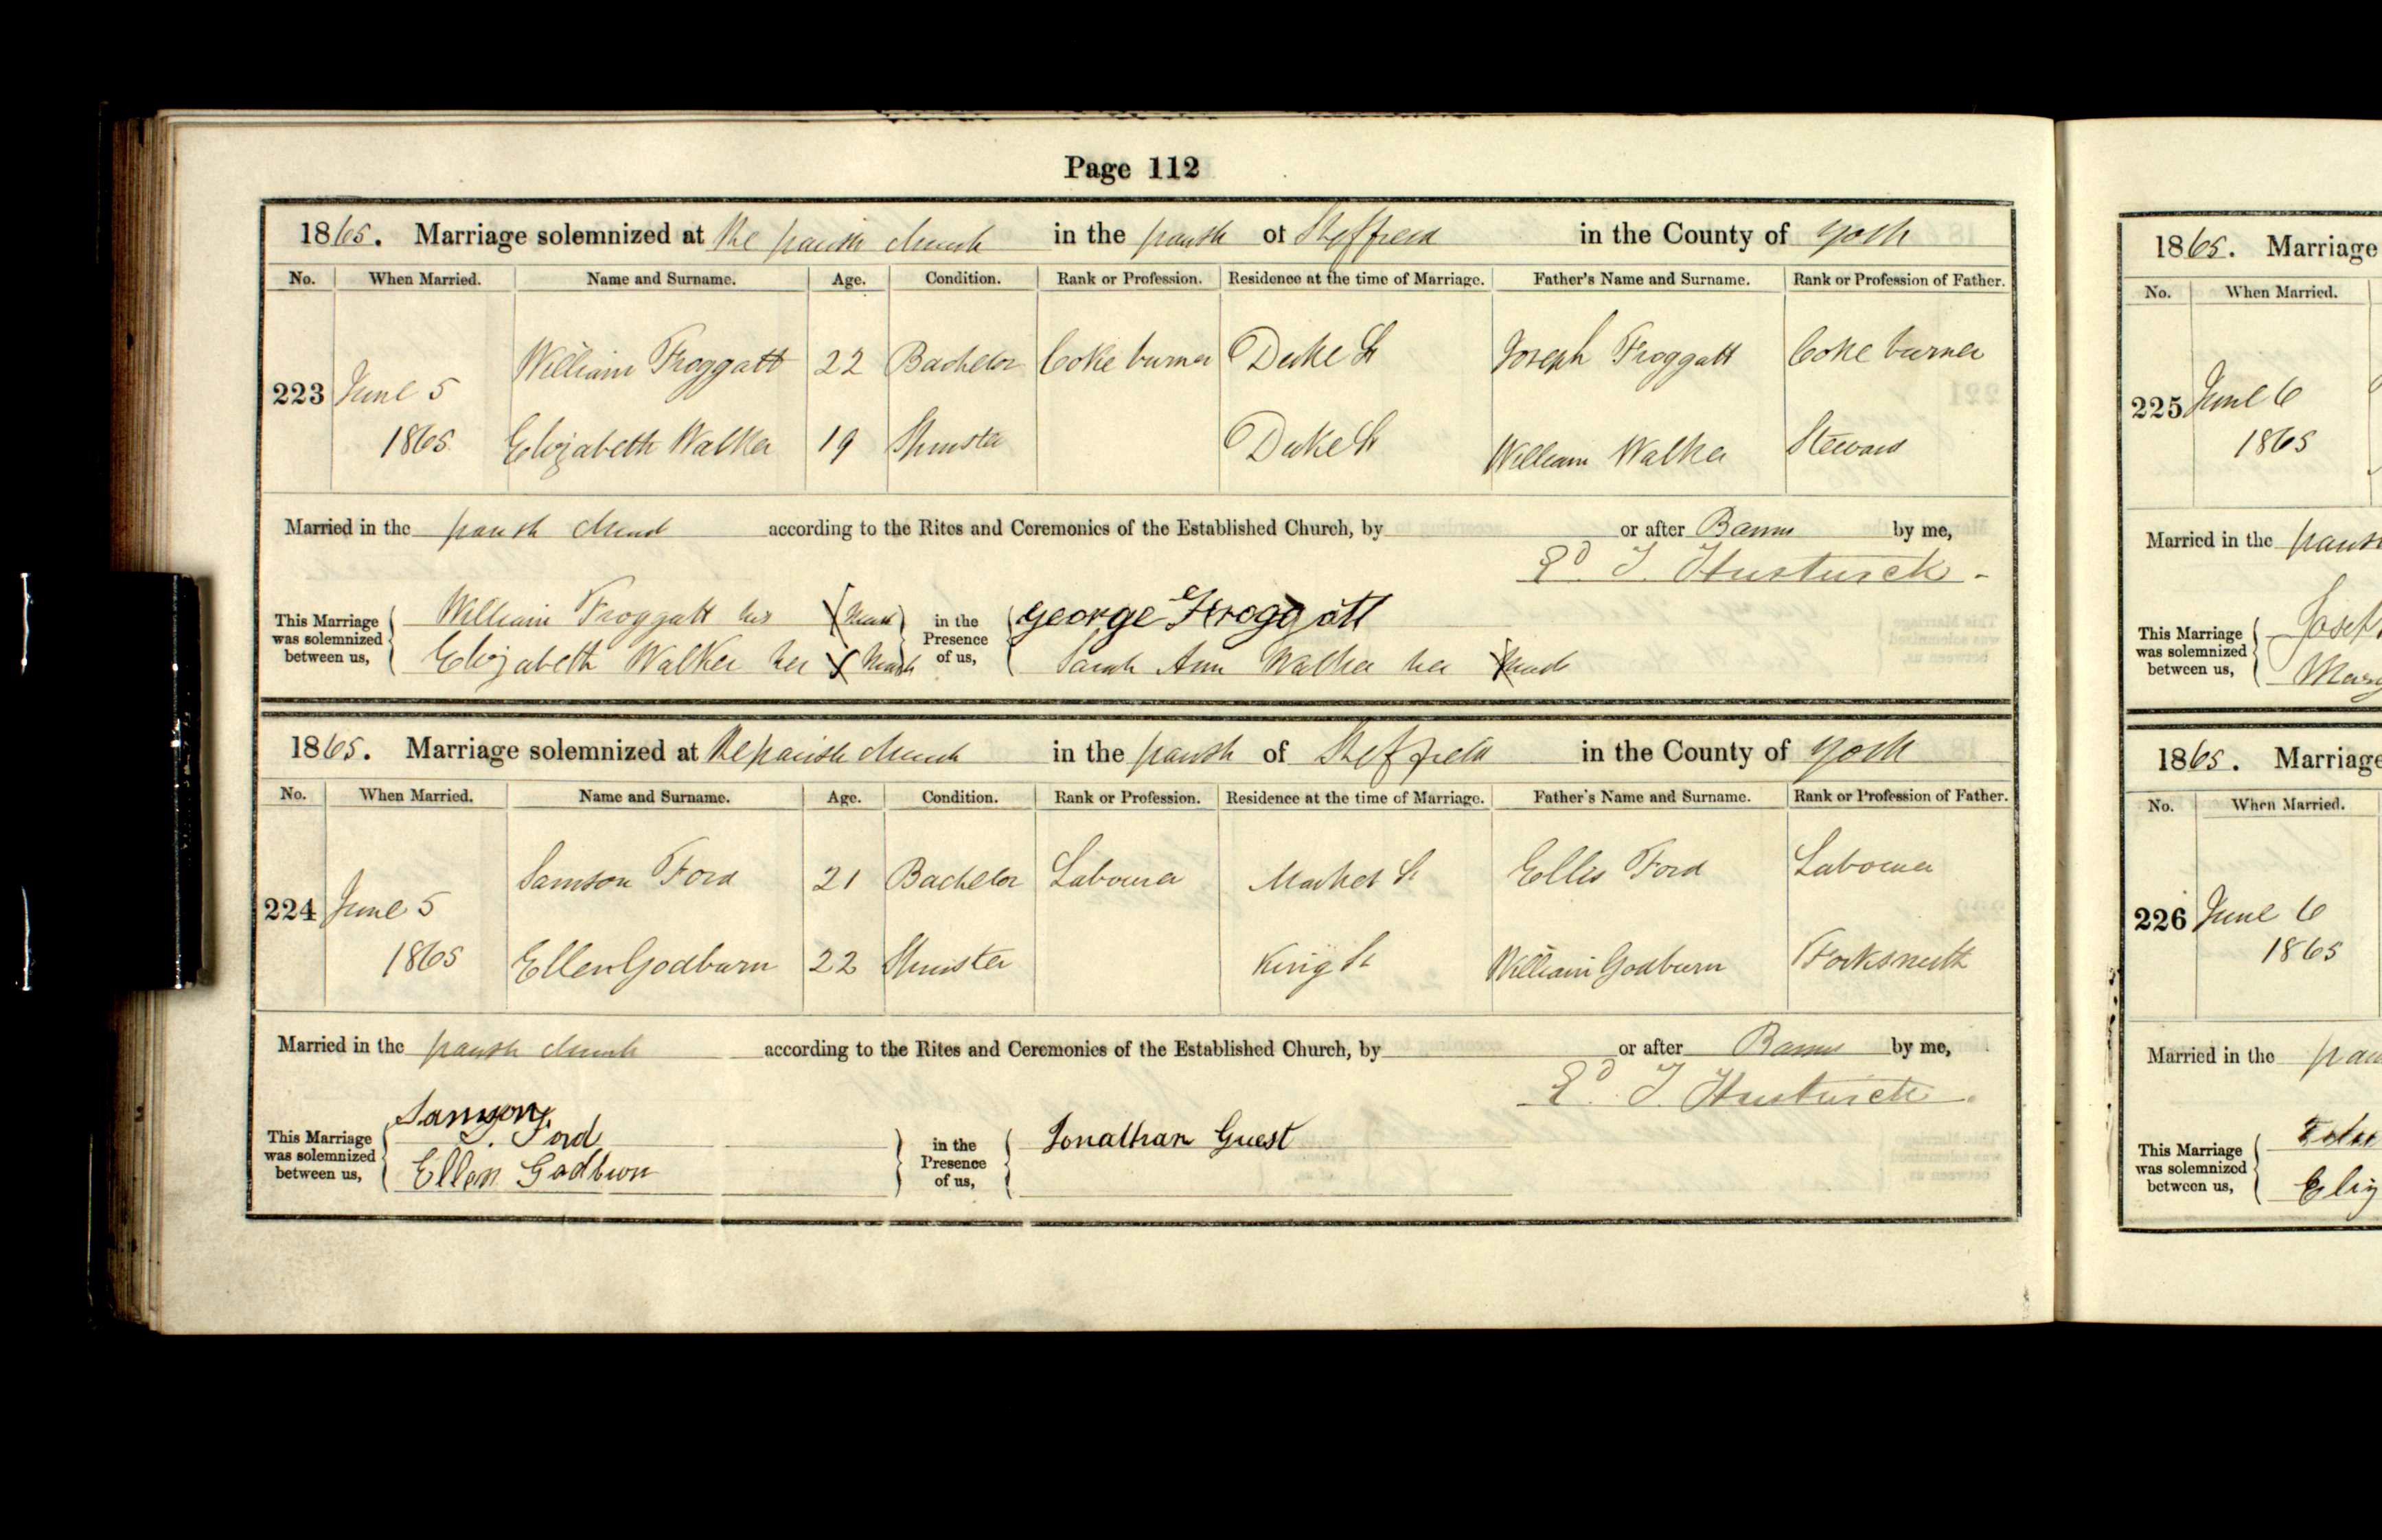 Page 112
1865. Marriage solemnized at the parish church in the parish of Sheffield in the County of York
No. When Married. Name and Surname. Age. Condition. Rank or Profession. Residence at the time of Marriage. Father's Name and Surname. Rank or Profession of Father.
William Froggatt 22 Bachelor Coke burner Duke St Joseph Froggatt Coke burner
223 June 5
1865 Elizabeth Walker 19 Spinster Duke St William Walker Steward
Married in the parish church according to the Rites and Ceremonies of the Established Church, by or after Banns by me,
This Marriage was solemnized between us, William Froggatt his X Mark in the Presence of us, George Froggatt
Elizabeth Walker her X Mark Sarah Ann Walker her X Mark
1865. Marriage solemnized at the parish church in the parish of Sheffield in the County of York
No. When Married. Name and Surname. Age. Condition. Rank or Profession. Residence at the time of Marriage. Father's Name and Surname. Rank or Profession of Father.
Samson Ford 21 Bachelor Labourer Market St Ellis Ford Labourer
224 June 5
1865 Ellen Godburn 22 Spinster King St William Godburn Forksmith
Married in the parish church according to the Rites and Ceremonies of the Established Church, by or after Banns by me,
This Marriage was solemnized between us, Samson Ford in the Presence of us, Jonathan Guest
Ellen Godburn
1865. Marriage
No. When Married.
225 June 6
1865
Married in the
This Marriage was solemnized between us,
1865. Marriage
No. When Married.
226 June 6
1865
Married in the
This Marriage was solemnized between us,